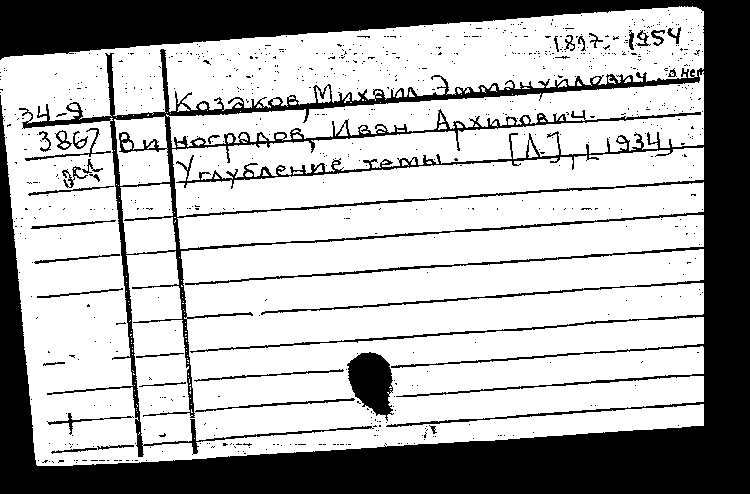 1897-1954
34-9 Козаков, Михаил Эммануилович. о нем
3867 Виноградов, Иван Архипович.
Углубление темы. [Л.], [1934].